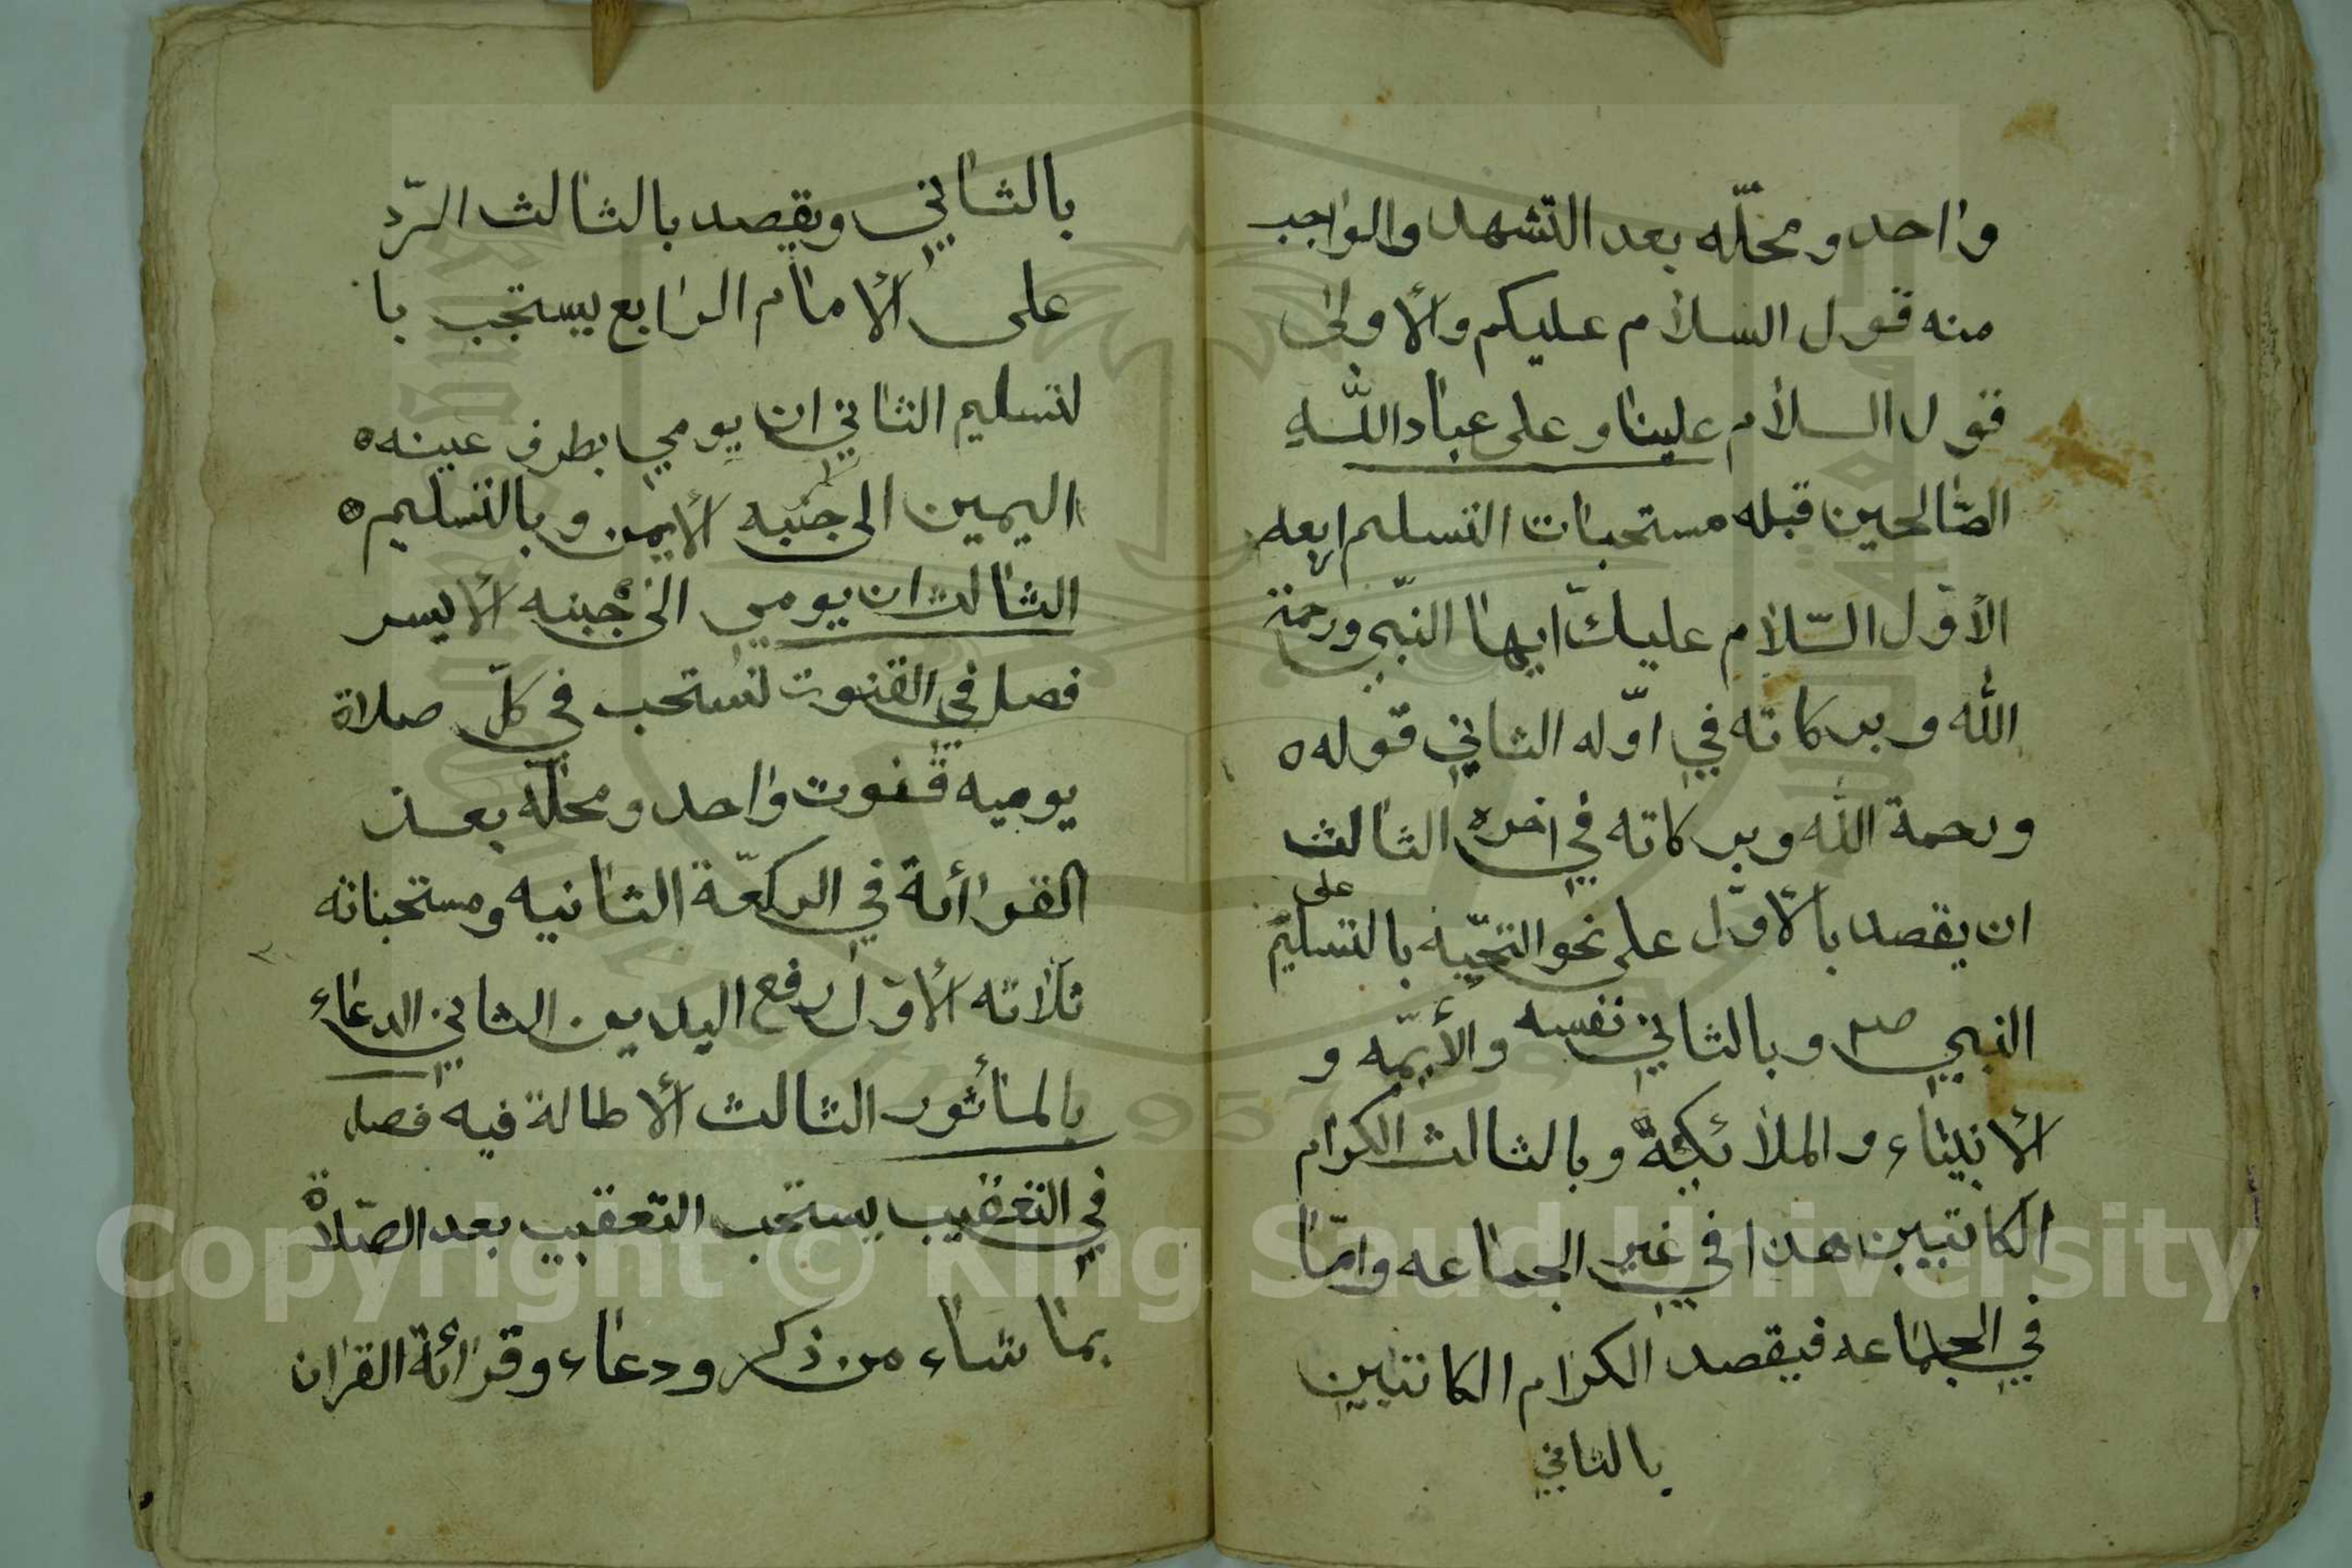 واحد ومحلّه بعد التشهد والواجب
منه قول السلام عليكم والأولى
قول السلام علينا وعلى عباد اللّه
الصّالحين قبله مستحبات التسليم اربعه
الأوّل السّلام عليك ايها النّبي ورحمة
الله وبركاته في اوّله الثاني قوله ه
ورحمة الله وبركاته في اخره الثالث
ان يقصد بالأوّل على نحو التحيّه بالتسليم على
النبي صم وبالثاني نفسه والأيمّه و
الأنبياء والملائكة وبالثالث الكرام
الكاتبين هذا في غير الجماعه وامّا
في الجماعه فيقصد الكرام الكاتبين
بالثاني
بالثاني ويقصد بالثالث الرّد
على الأمام الرابع يستحب با
لتسليم الثاني ان يومي بطرف عينه ه
اليمين الى جنبه الأيمن وبالتسليم ه
الثالث ان يومي الى جنبه الأيسر
فصل في القنوت تستحب في كلّ صلاة
يوميه قنوت واحد ومحلّه بعد
القراأة في الركعّة الثانيه ومستحباته
ثلاثه الأوّل رفع اليدين الثاني الدعاء
بالمأثور الثالث الأطالة فيه فصل
في التعقيب يستحب التعقيب بعد الصّلاة
بما شاء من ذكر ودعاء وقرائة القران
Copyright © King Saud University
1957